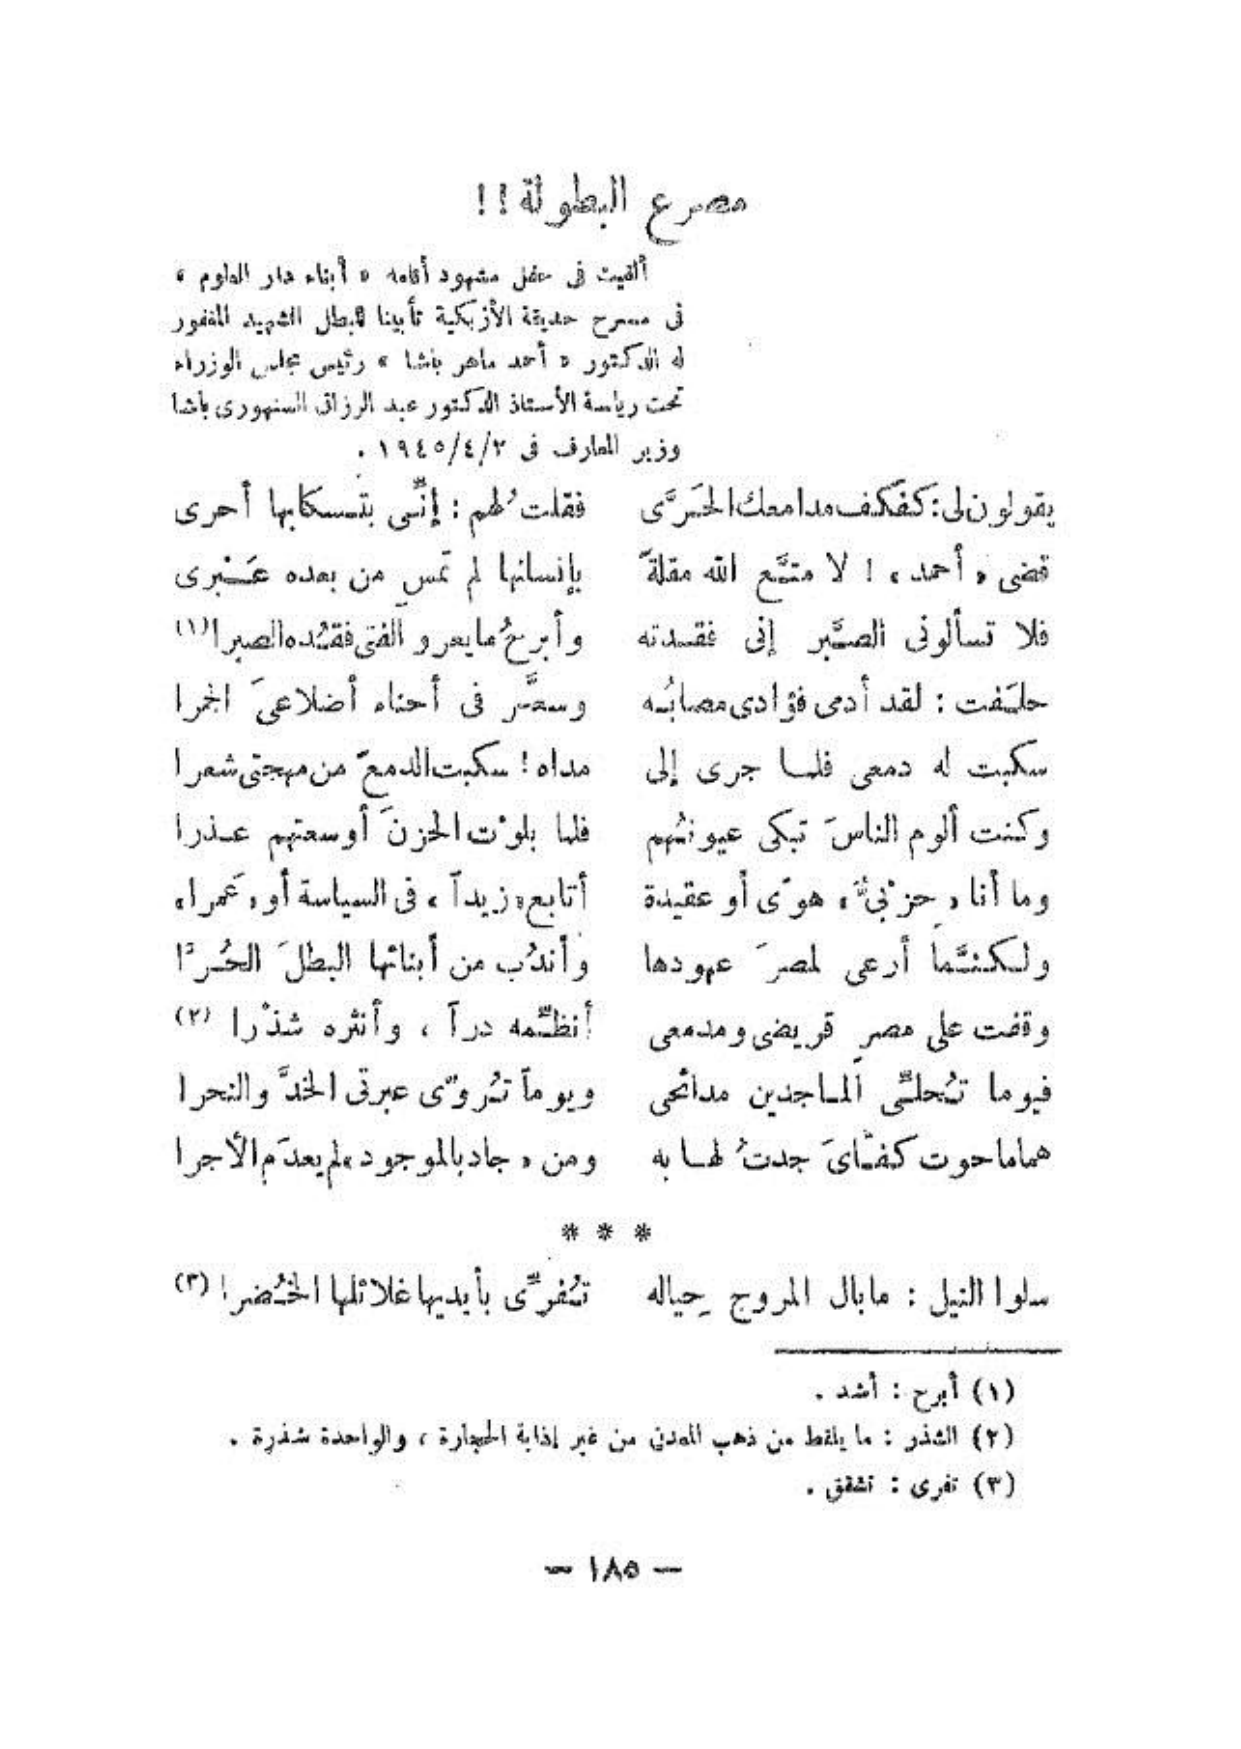 مصرع البطولة !!
ألقيت فى حفل مشهود أقامه « أبناء دار العلوم »
فى مسرح حديقة الأزبكية تأبينا للبطل الشهيد المغفور
له الدكتور « أحمد ماهر باشا » رئيس مجلس الوزراء
تحت رياسة الأستاذ الدكتور عبد الرزاق السنهورى باشا
وزير المعارف فى ١٩٤٥/٤/٢ .
يقولون لى : كفكف مدامعك الحَرَّى فقلت ُلهم : إنِّى بتسكابها أحرى
قضى « أحمد » ! لا متَّع الله مقلةً بإنسانها لم تمسِ من بعده عَبْرى
فلا تسألونى الصَّبر إنى فقدته وأبرحُ ما يعرو الفتى فقدُه الصبرا (١)
حلَفت : لقد أدمى فؤادى مصابُه وسعَّر فى أحناء أضلاعىَ الجمرا
سكبت له دمعى فلما جرى إلى مداه ! سكبت الدمعَ من مهجتى شعرا
وكنت ألوم الناسَ تبكى عيونُهم فلما بلوْت الحزنَ أوسعتهم عذرا
وما أنا « حزْبىٌّ » هوًى أو عقيدة أتابع « زيداً » فى السياسة أو « عَمرا »
ولكنَّما أرعى لمصرَ عهودها وأندُب من أبنائها البطلَ الحُرَّا
وقفت على مصرِ قريضى ومدمعى أنظِّمه دراً ، وأنثره شذْرا (٢)
فيوما تُحلِّى الماجدين مدائحى ويوماً تُروِّى عبرتى الخدَّ والنحرا
هما ما حوت كفَّاىَ جدتُ لها به ومن « جاد بالموجود » لم يعدَم الأجرا
* * *
سلوا النيل : ما بال المروج حِياله تُفرِّى بأيديها غلائلها الخُضرا (٣)
(١) أبرح : أشد .
(٢) الشذر : ما يلقط من ذهب المعدن من غير إذابة الحجارة ، والواحدة شذرة .
(٣) تفرى : تشقق .
— ١٨٥ —